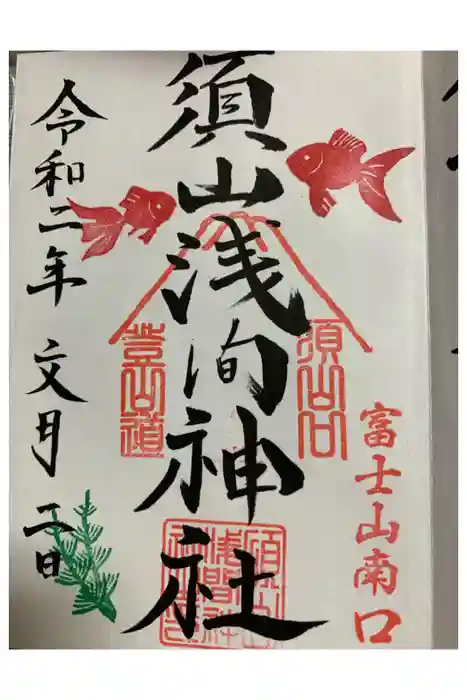 富士山南口
須山口
須山浅間神社
登山道
令和二年 文月 二日